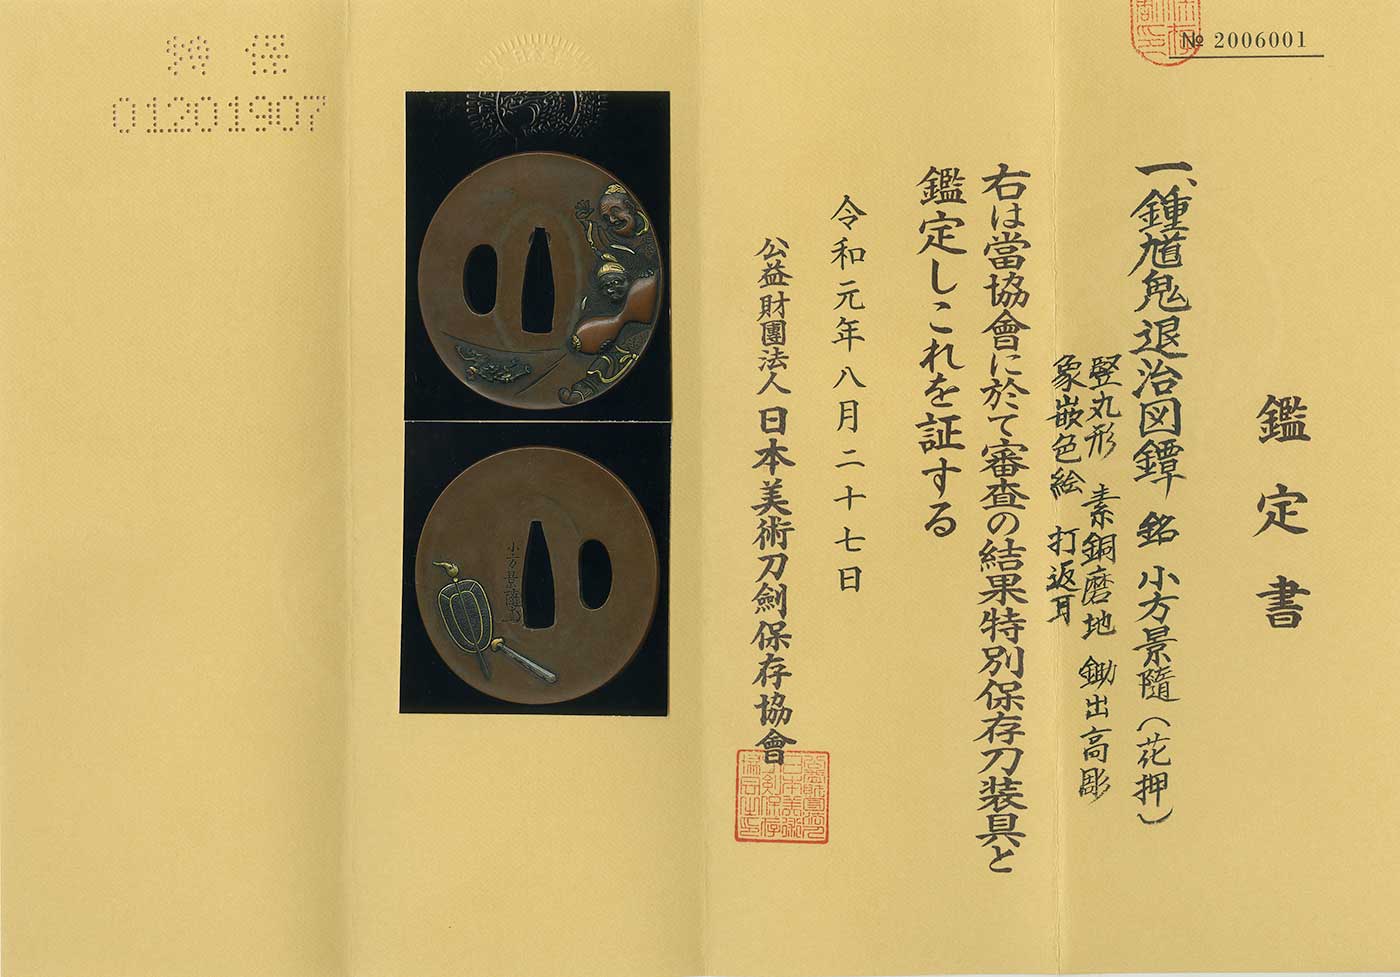 № 2006001
鑑定書
一、鍾馗鬼退治図鐔 銘 小方景隨（花押）
竪丸形 素銅磨地 鋤出高彫
象嵌色絵 打返耳
右は當協會に於て審査の結果特別保存刀装具と
鑑定しこれを証する
令和元年八月二十七日
公益財團法人 日本美術刀劍保存協會
特保
01201907